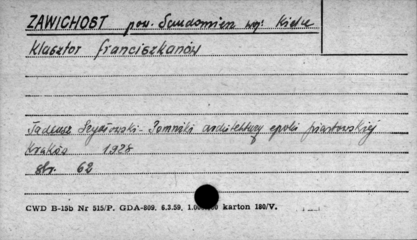 ZAWICHOST pow. Sandomierz woj. Kielce
klasztor franciszkanów
Tadeusz Szydłowski - Pomniki architektury epoki piastowskiej
Kraków 1928
str. 62
CWD B-15b Nr 515/P. GDA-809. 6.3.59, karton 180/V.